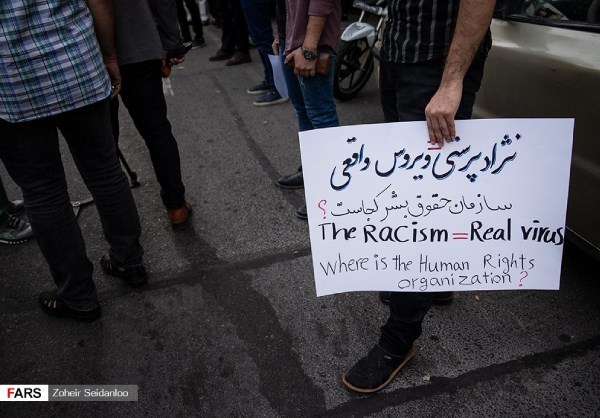 نژادپرستی = ویروس واقعی
سازمان حقوق بشر کجاست؟
The RACism = Real virus
Where is the Human Rights
organization?
FARS Zoheir Seidanloo